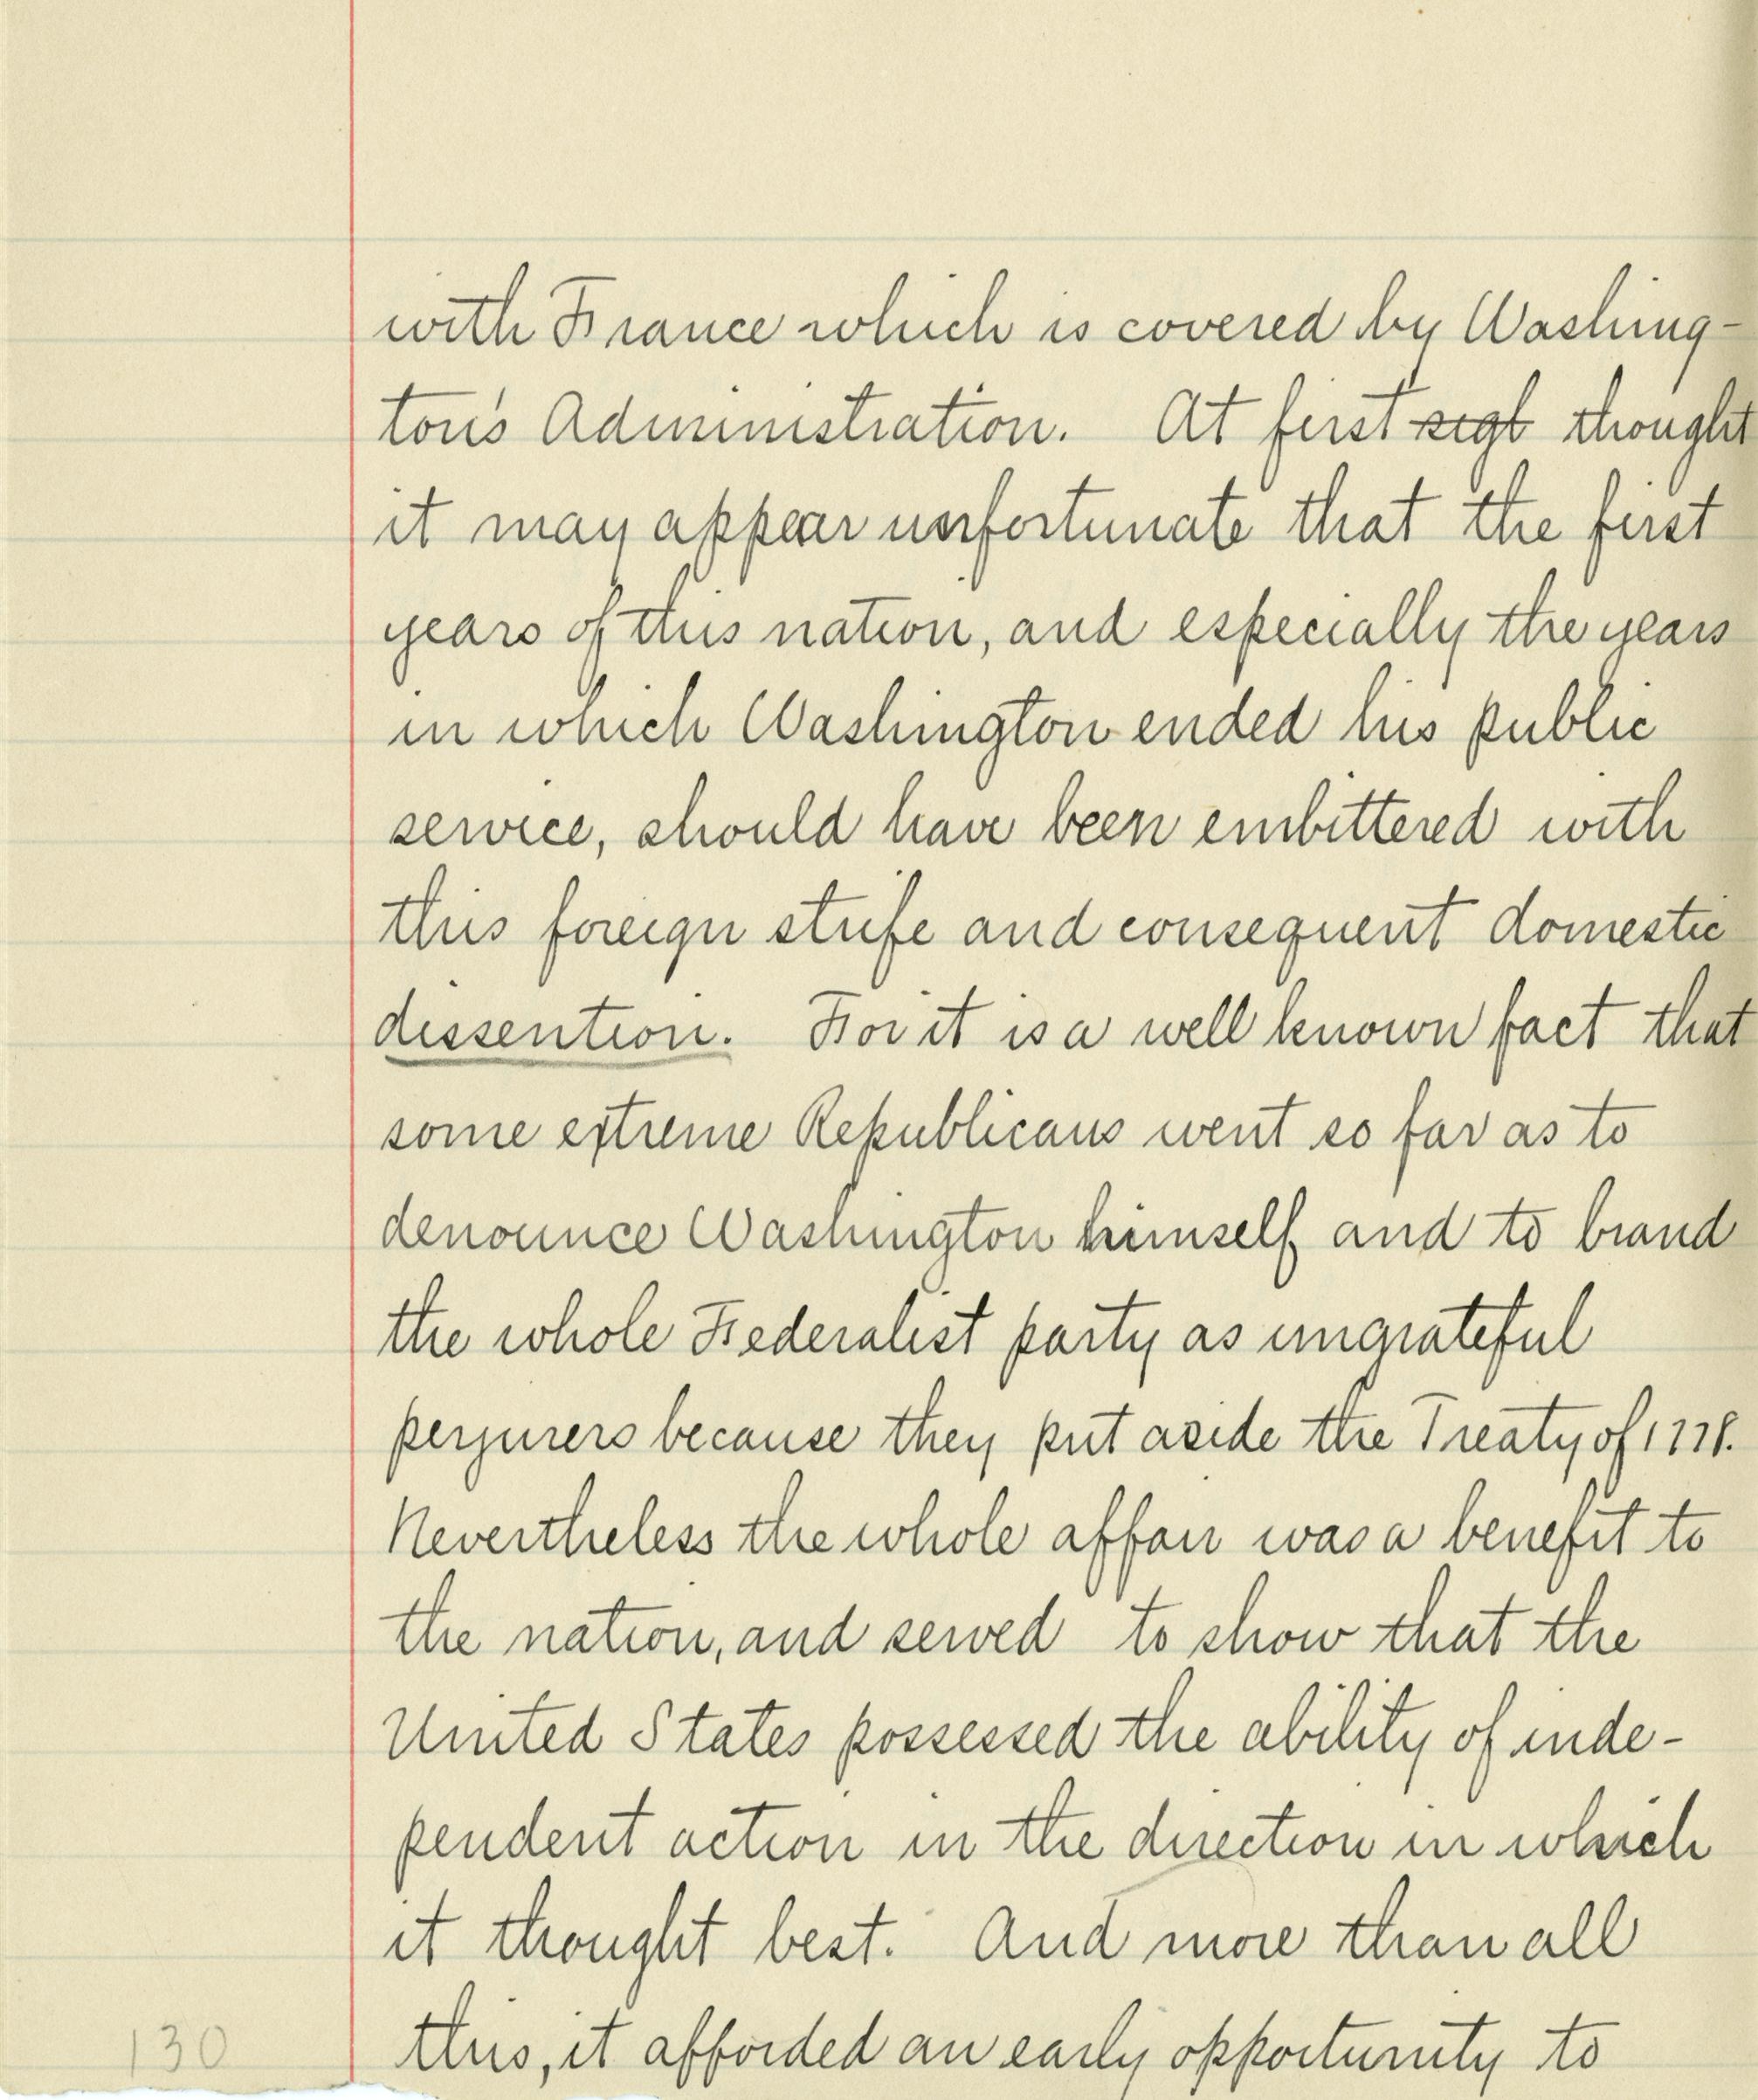 with France which is covered by Washing-
ton's Administration. At first sigt thought
it may appear unfortunate that the first
years of this nation, and especially the years
in which Washington ended his public
service, should have been embittered with
this foreign strife and consequent domestic
dissention. For it is a well known fact that
some extreme Republicans went so far as to
denounce Washington himself and to brand
the whole Federalist party as ungrateful
perjurers because they put aside the Treaty of 1778.
Nevertheless the whole affair was a benefit to
the nation, and served to show that the
United States possessed the ability of inde-
pendent action in the direction in which
it thought best. And more than all
this, it afforded an early opportunity to
130